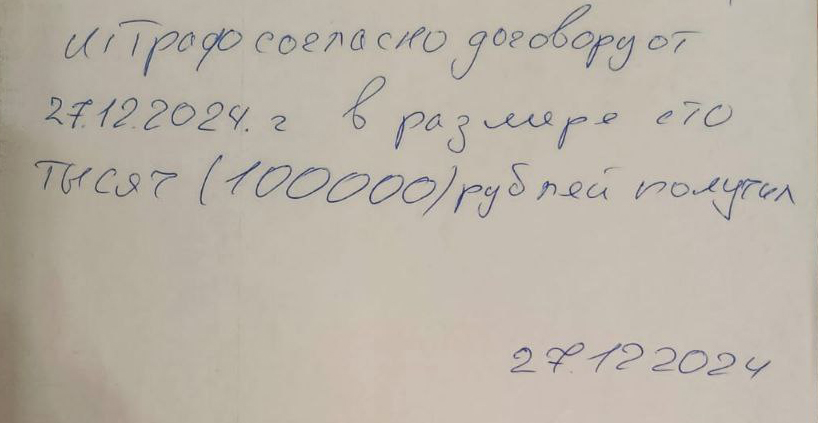 штраф согласно договору от
27.12.2024. г в размере сто
тысяч (100000) рублей получил
27.12 2024